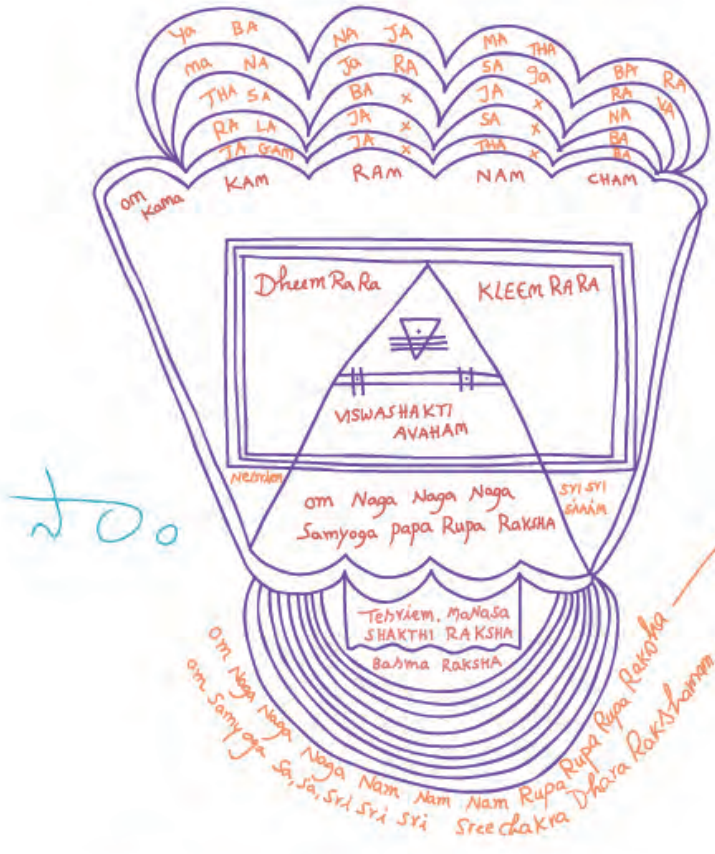 Ya BA NA JA MA THA BA RA
ma NA Ja RA SA ga RA VA
THA SA BA x JA x NA
RA LA JA x SA x BA
JA GAM JA x THA x BA
om Kama KAM RAM NAM CHAM
Dheem RaRa KLEEM RARA
VISWASHAKTI
AVAHAM
Nebrien
SVI SVI
SAAAM
om Naga Naga Naga
Samyoga papa Rupa RAKSHA
Tebriem. MaNaSa
SHAKTHI RAKSHA
Basma RAKSHA
om Naga Naga Naga Nam Nam Nam Rupa Rupa Rupa Raksha
om Samyoga Sa, Sa, Sri Sri Sri Sreechakra Dhara Rakshamam